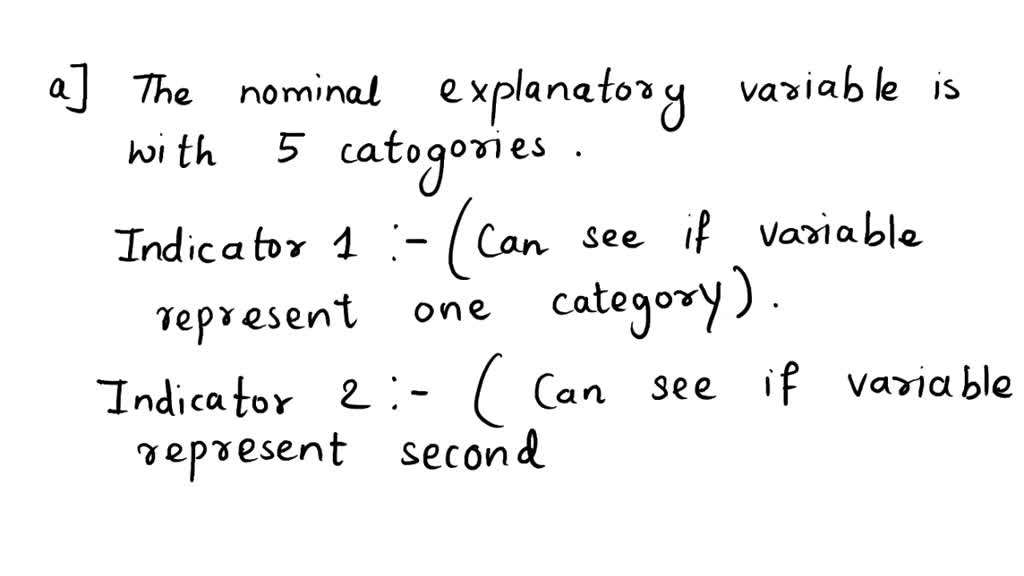 a] The nominal explanatory variable is
with 5 catogories.
Indicator 1 :- (Can see if variable
represent one category).
Indicator 2 :- ( Can see if variable
represent second